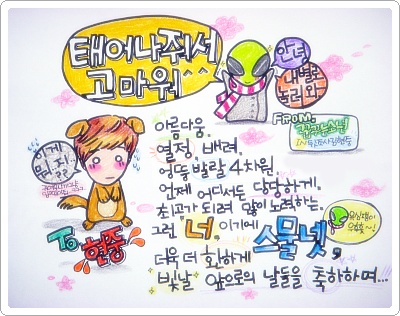 태어나줘서
고마워^^
안녕
내별로
놀러와
FROM.
이게
뭐지
??
아름다움.
열정, 배려,
엉뚱발랄 4차원.
언제 어디서든 당당하게.
최고가 되려 많이 노력하는.
그런 너, 이기에
To 현중
스물넷,
더욱 더 환하게
빛날 앞으로의 날들을 축하하며...